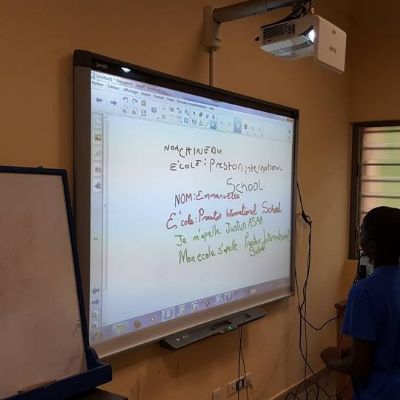 NOM CHINEDU
ECOLE: Preston international
School.
NOM: Emmanuella
E'cole: Preston International School
Je m'apelle Justus ASAR
Mon ecole s'apelle Preston International
School